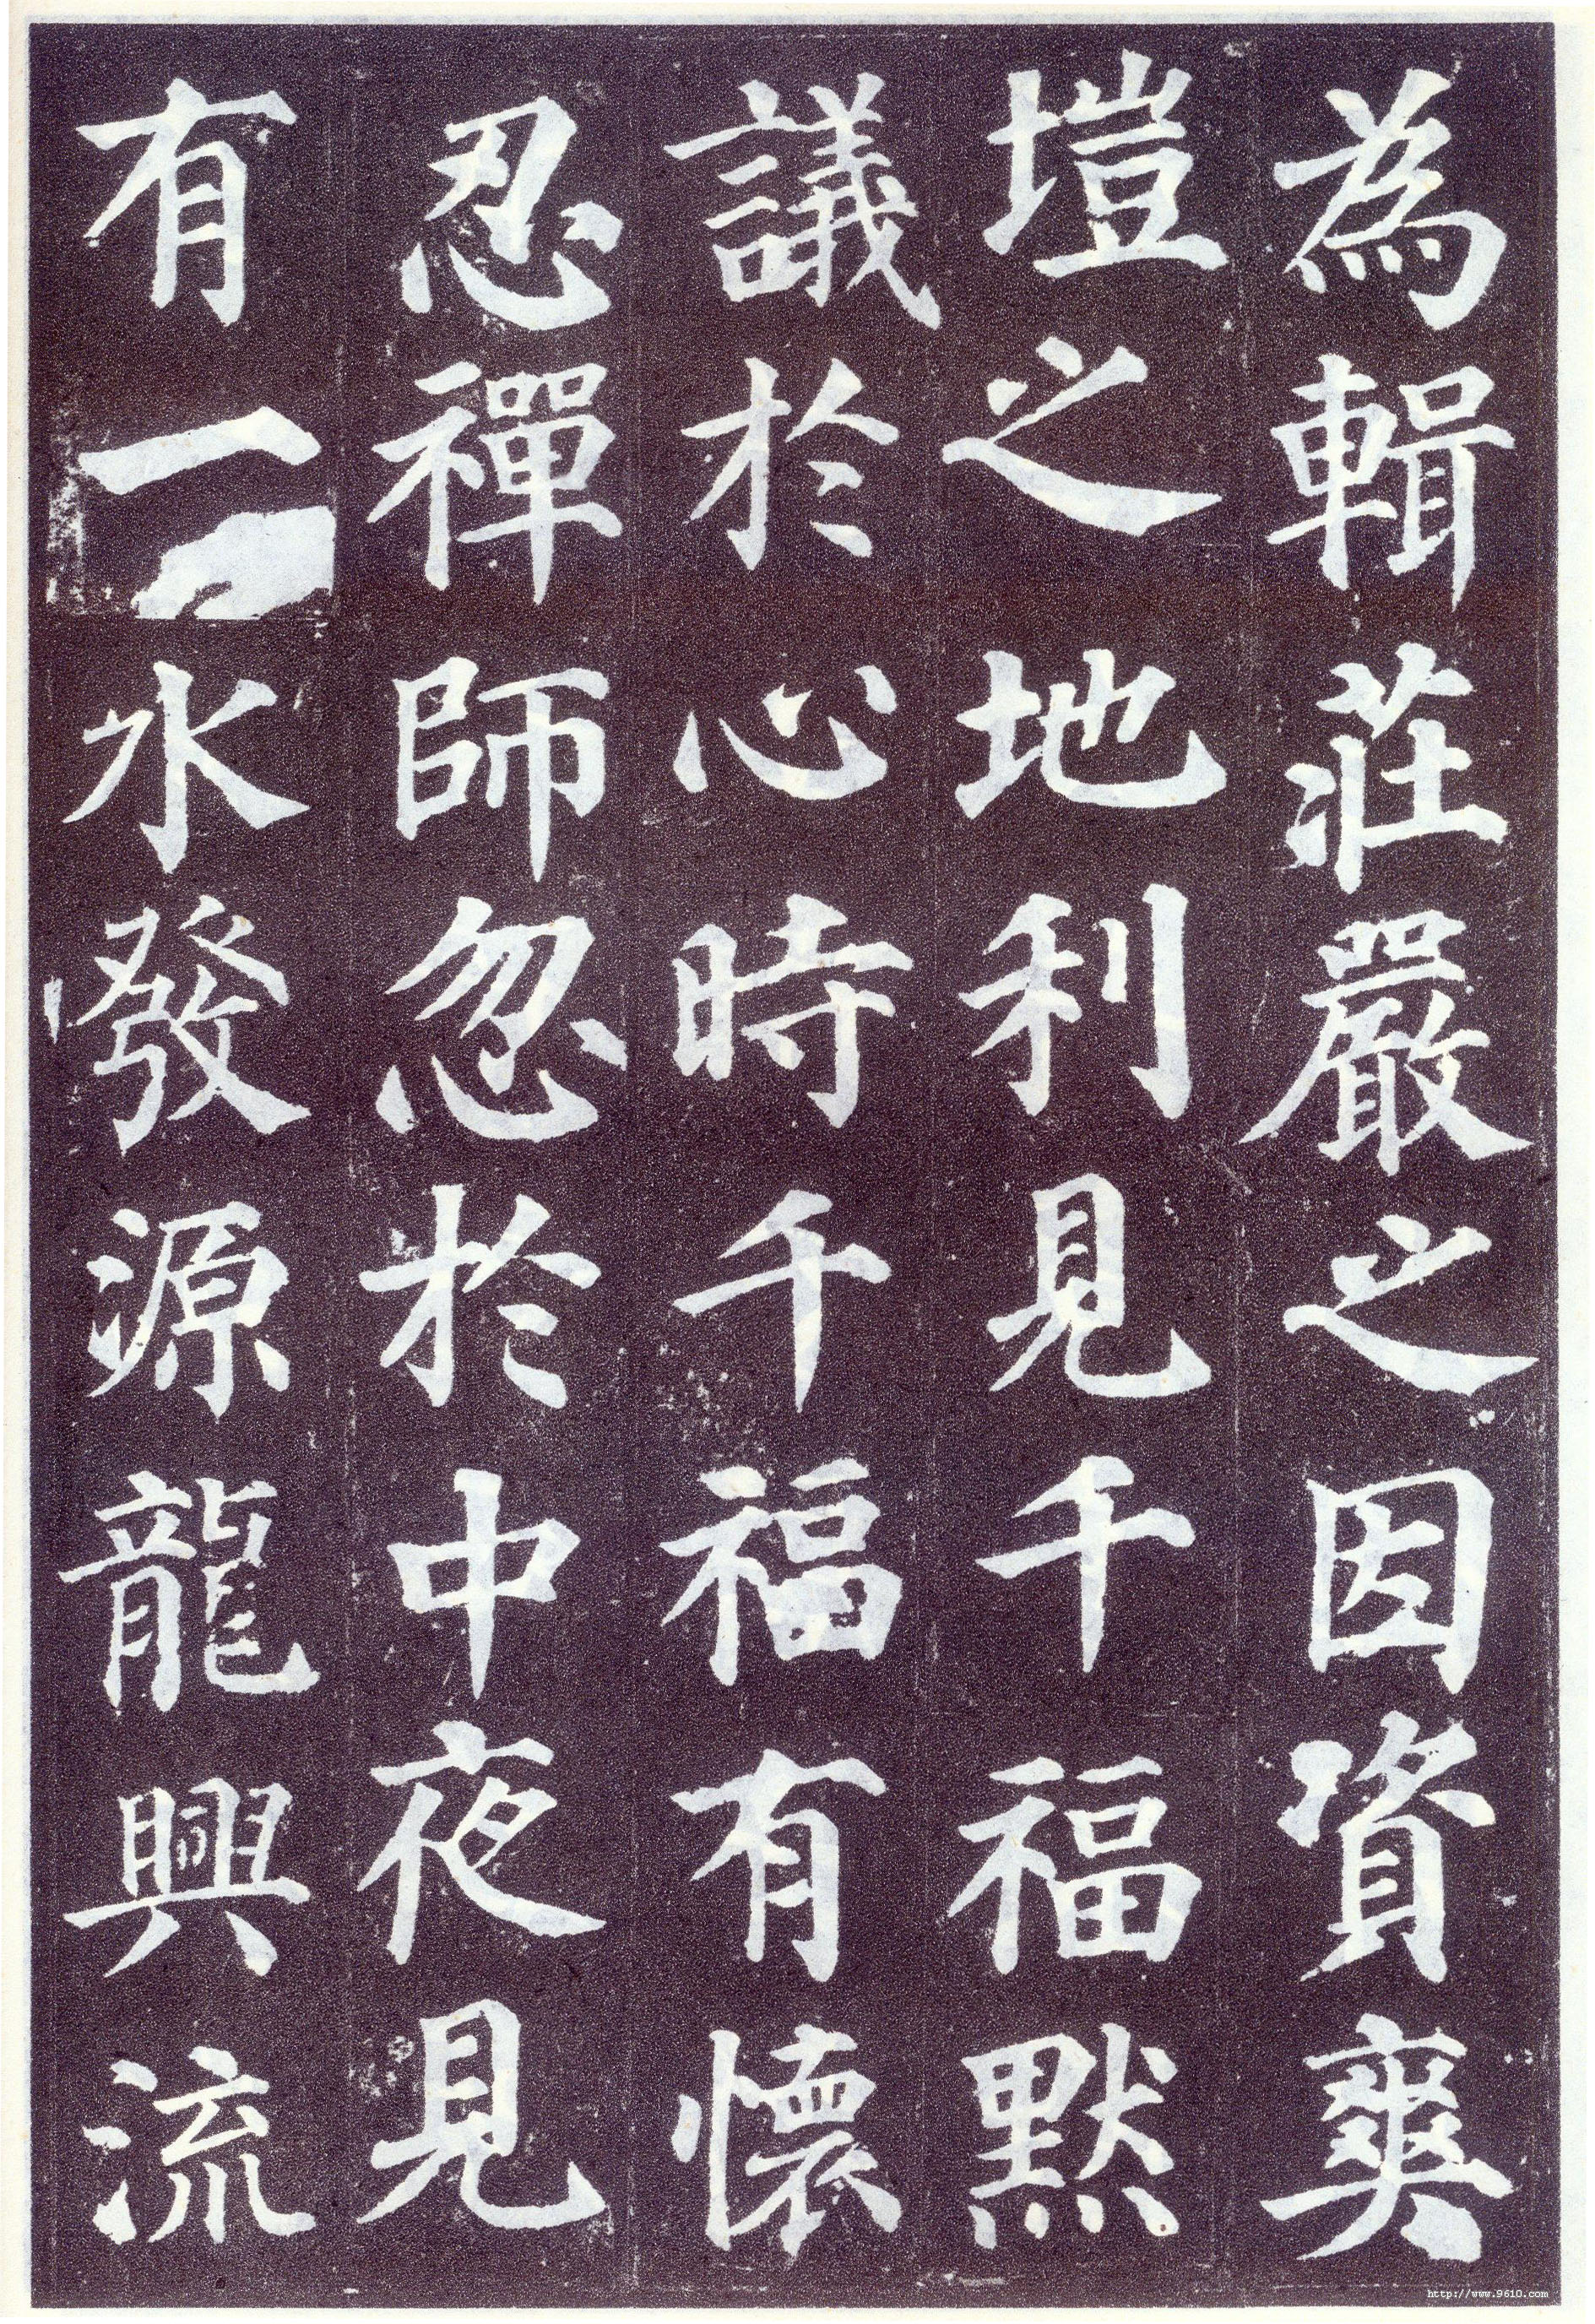 為輯莊嚴之因資爽
塏之地利見千福默
議於心時千福有懷
忍禪師忽於中夜見
有一水發源龍興流
http://www.9610.com